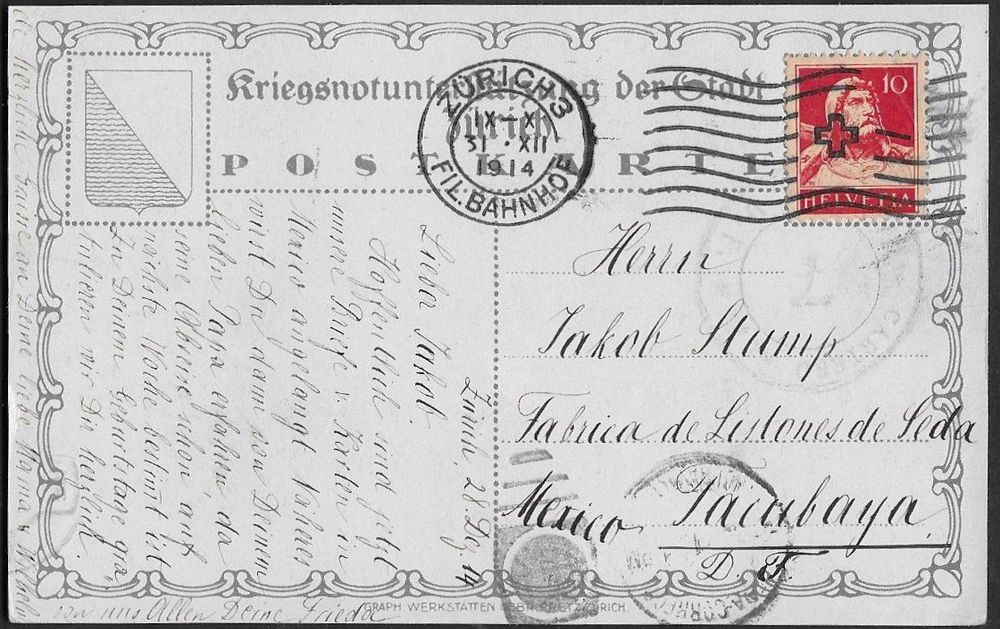 Kriegsnotunterstützung der Stadt
Zürich
POSTKARTE
ZÜRICH 3
IX-X
31 · XII
1914
FIL. BAHNHOF
10
HELVETIA
Herrn
Jakob Stump
Fabrica de Listones de Seda
Mexico Tacubaya
D. F.
Zürich, 28. Dez. 14
Lieber Jakob.
Hoffentlich sind jetzt
unsere Briefe u. Karten in
Mexico angelangt
wirst Du dann von Deinem
lieben Papa erfahren, da
seine Abreise schon auf
nächste Woche bestimt ist
Zu Deinem Geburtstage gra-
tulieren wir Dir herzlich.
herzliche Grüsse an Deine liebe Mama &
von uns Allen Deine Frieda
GRAPH WERKSTÄTTEN GEBR. FRETZ ZÜRICH.